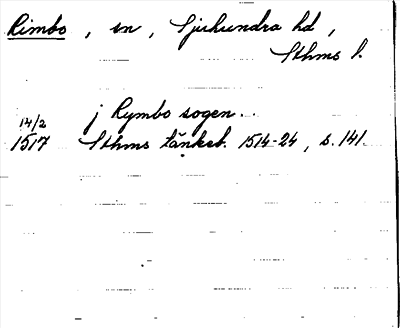 Rimbo, sn, Sjuhundra hd,
Sthms l.
j Rymbo sogen..
14/2
1517 Sthms tänkeb. 1514-24, s. 141.